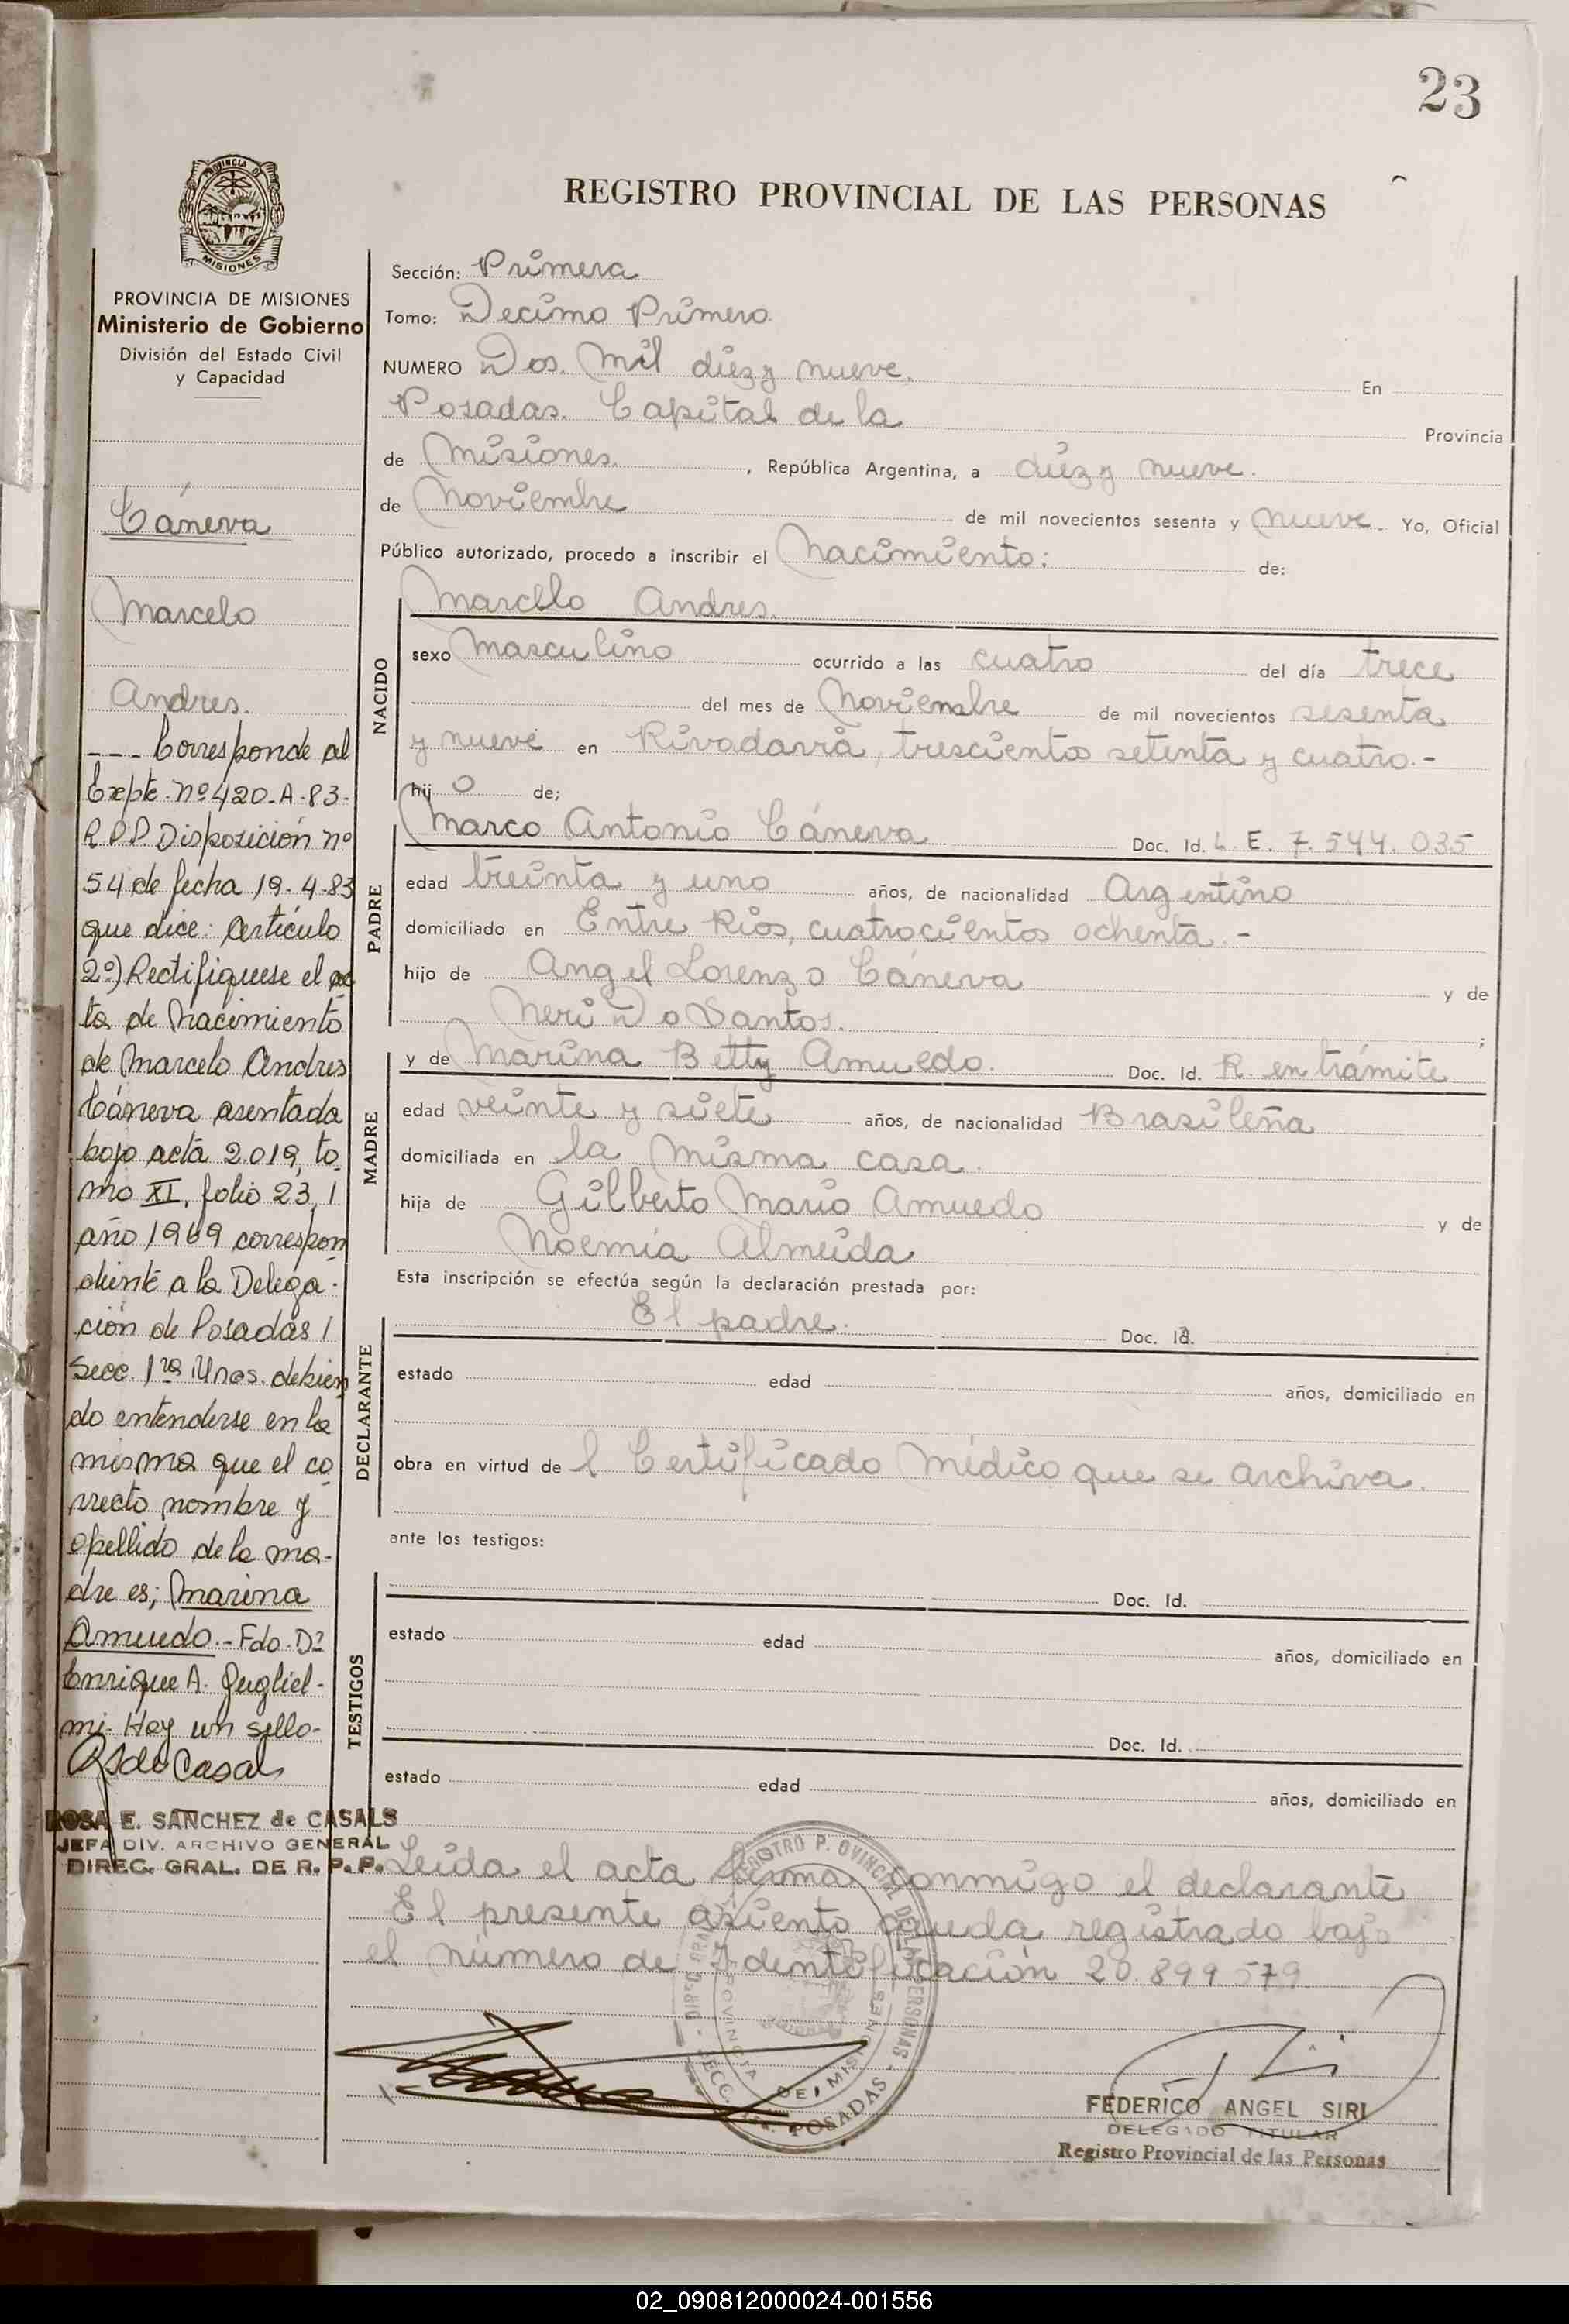 23
PROVINCIA DE
MISIONES
REGISTRO PROVINCIAL DE LAS PERSONAS
PROVINCIA DE MISIONES
Ministerio de Gobierno
División del Estado Civil
y Capacidad
Cáneva
Marcelo
Andres.
--- Corresponde al
Expte. nº 420-A-83-
R.P.P. Disposición nº
54 de fecha 19-4-83
que dice: Artículo
2º) Rectifiquese el ac
ta de nacimiento
de Marcelo Andres
Cáneva asentada
bajo acta 2.019, to
mo XI, folio 23, /
año 1969 correspon
diente a la Delega-
ción de Posadas /
Secc. 1ra Mnes. debien
do entenderse en la
misma que el co
rrecto nombre y
apellido de la ma-
dre es; Marina
Amuedo.- Fdo. Dº
Enrique A. Gugliel-
mi- Hay un sello-
ROSA E. SANCHEZ de CASALS
JEFA DIV. ARCHIVO GENERAL
DIREC. GRAL. DE R. P. P.
Sección: Primera
Tomo: Decimo Primero.
NUMERO Dos. Mil diez y nueve. En
Posadas. Capital de la Provincia
de Misiones. , República Argentina, a diez y nueve.
de Noviembre de mil novecientos sesenta y nueve. Yo, Oficial
Público autorizado, procedo a inscribir el Nacimiento: de:
NACIDO
Marcelo Andres.
sexo Masculino ocurrido a las cuatro del día trece
del mes de Noviembre de mil novecientos sesenta
y nueve en Rivadavia, trescientos setenta y cuatro.-
hij o de;
PADRE
Marco Antonio Cáneva Doc. Id. L. E. 7.544.035
edad treinta y uno años, de nacionalidad Argentino
domiciliado en Entre Rios, cuatrocientos ochenta.-
hijo de Angel Lorenzo Cáneva y de
Neri Do Santos. ;
MADRE
y de Marina Betty Amuedo. Doc. Id. R. en trámite
edad veinte y siete años, de nacionalidad Brasileña
domiciliada en la misma casa.
hija de Gilberto Mario Amuedo y de
Noemia Almeida
Esta inscripción se efectúa según la declaración prestada por:
DECLARANTE
El padre. Doc. Id.
estado edad años, domiciliado en
obra en virtud de l Certificado Médico que se archiva.
ante los testigos:
TESTIGOS
Doc. Id.
estado edad años, domiciliado en
Doc. Id.
estado edad años, domiciliado en
Leida el acta firma conmigo el declarante
El presente asiento queda registrado bajo
el número de Identificación 20.899.579
PROVINCIA DE MISIONES
POSADAS
FEDERICO ANGEL SIRI
DELEGADO TITULAR
Registro Provincial de las Personas
02_090812000024-001556